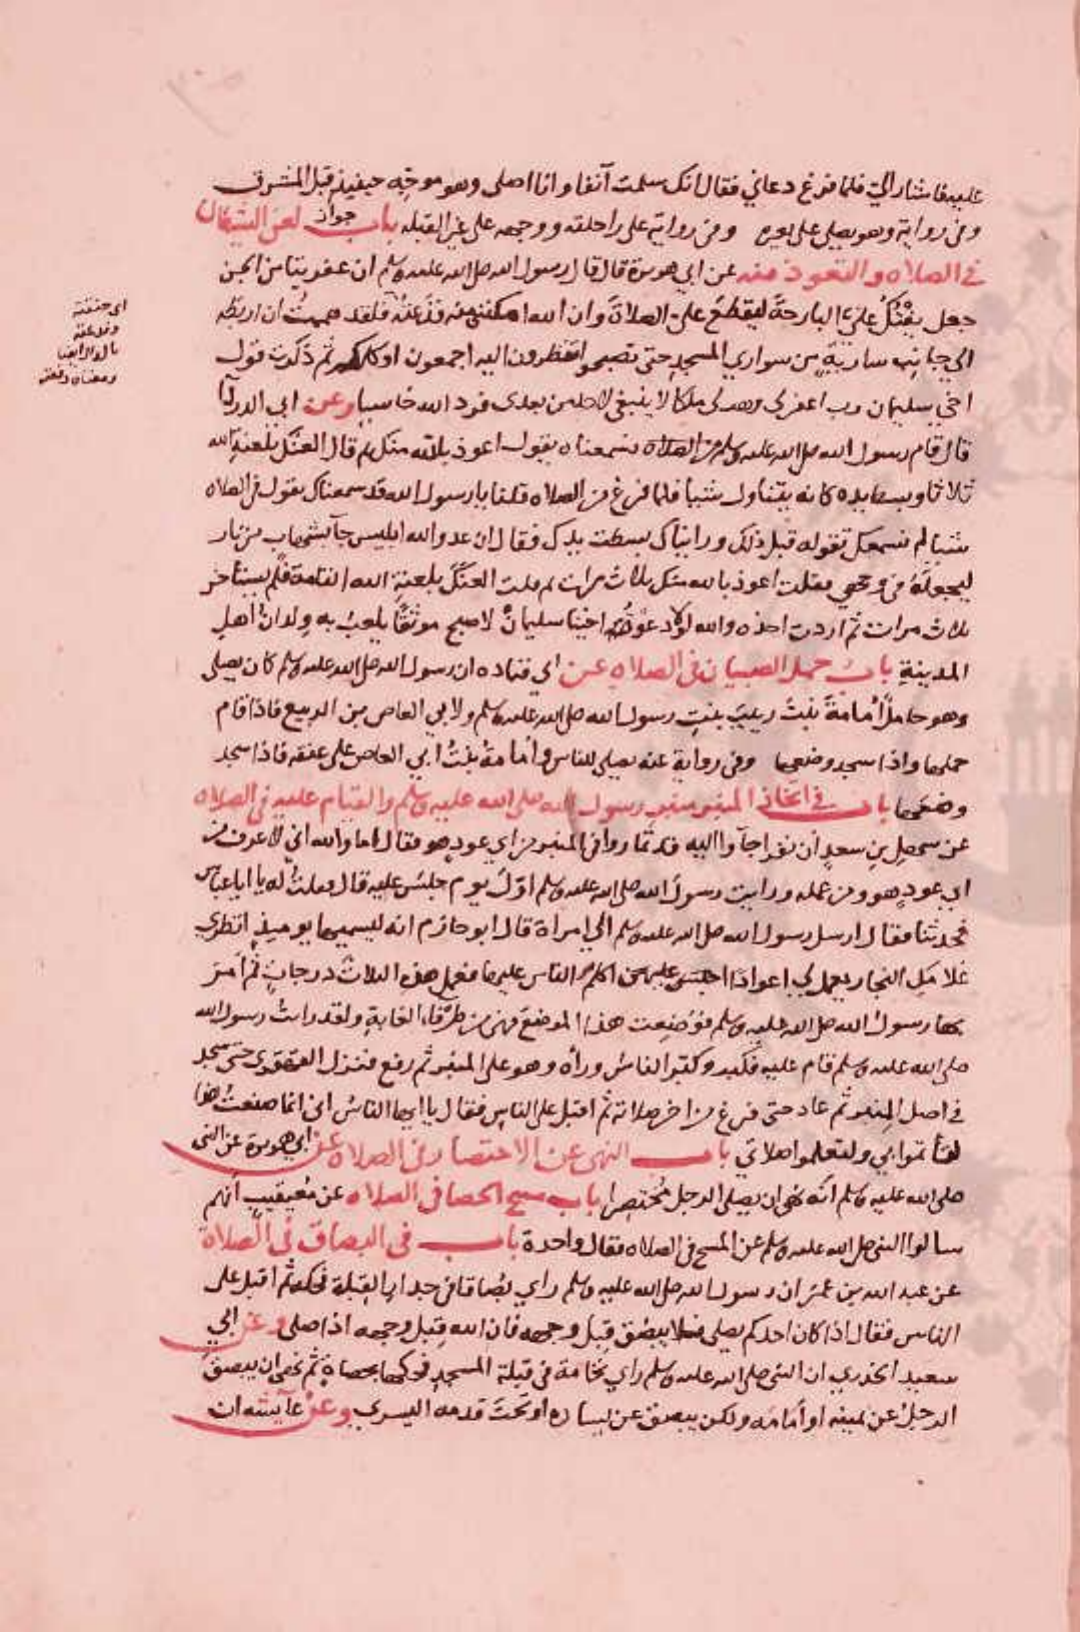 عليه فاشار الي فلما فرغ دعاني فقال انك سلمت آنفا وانا اصلي وهو موجّه حينيذ قبل المشرق
وفي رواية وهو يصلي على بعيره وفي رواية على راحلته ووجهه على غير القبله باب جواز لعن الشيطان
في الصلاه والتعوذ منه عن ابي هريرة قال قال رسول الله صلى الله عليه وسلم ان عفريتا من الجن
جعل يفتك عليّ البارحة ليقطع عليّ الصلاةَ وان الله امكنني منه فذعتّه فلقد هممتُ ان اربطه
الي جانب ساريةٍ من سواري المسجد حتى تصبحوا تنظرون اليه اجمعون او كلكم ثم ذكرت قول
اخي سليمان رب اغفر لي وهب لي ملكا لا ينبغي لاحد من بعدي فرد الله خاسيا وعن ابي الدردا
قال قام رسول الله صلى الله عليه وسلم من الصلاه فسمعناه يقول اعوذ بالله منك ثم قال العنك بلعنة الله
ثلاثا وبسط يده كانه يتناول شيا فلما فرغ من الصلاه قلنا يا رسول الله قد سمعناك تقول في الصلاه
شيا لم نسمعك تقوله قبل ذلك ورايناك بسطت يدك فقال ان عدو الله ابليس جآ بشهاب من نار
ليجعله في وجهي فقلت اعوذ بالله منك ثلاث مرات ثم قلت العنكَ بلعنة الله التامة فلم يستأخر
ثلاث مرات ثم اردت اخذه والله لولا دعوة اخينا سليمان لاصبح موثقًا يلعبُ به ولدانُ اهل
المدينةِ باب حمل الصبيان في الصلاه عن ابي قتاده ان رسول الله صلى الله عليه وسلم كان يصلي
وهو حاملٌ أُمامةَ بنتَ زينبَ بنتِ رسول الله صلى الله عليه وسلم ولابي العاص بن الربيع فاذا قام
حملها واذا سجد وضعها وفي رواية عنه يصلي للناس وأُمامةُ بنتُ ابي العاص على عنقه فاذا سجد
وضعها باب في اتخاذ المنبر منبر رسول الله صلى الله عليه وسلم والقيام عليه في الصلاه
عن سهل بن سعد ان نفرا جآوا اليه قد تماروا في المنبر من اي عود هو فقال اما والله اني لاعرف من
اي عودٍ هو ومن عمله ورايت رسول الله صلى الله عليه وسلم اوّل يوم جلس عليه قال فقلت له يا ابا عباس
فحدثنا فقال ارسل رسول الله صلى الله عليه وسلم الي امراة قال ابو حازم انه ليسميها يوميذ انظري
غلامكِ النجار يعمل لي اعوادًا اجلس عليهن اكلم الناس عليها فعمل هذه الثلاثَ درجاتٍ ثم امر
بها رسول الله صلى الله عليه وسلم فوُضِعت هذا الموضع فهي من طرفاء الغابةِ ولقد رايتُ رسول الله
صلى الله عليه وسلم قام عليه فكبر وكبّر الناسُ ورآه وهو على المنبر ثم رفع فنزل القهقرى حتى سجد
في اصل المنبر ثم عاد حتى فرغ من اخر صلاته ثم اقبل على الناس فقال يا ايها الناسُ اني انما صنعتُ هذا
لتأتموا بي ولتعلموا صلاتي باب النهي عن الاختصار في الصلاه عن ابي هريرة عن النبي
صلى الله عليه وسلم انّه نهي ان يصلي الرجل مُختصِرا باب مسح الحصا في الصلاه عن مُعيقيب انهم
سالوا النبي صلى الله عليه وسلم عن المسح في الصلاه فقال واحدة باب في البصاق في الصلاة
عن عبد الله بن عمر ان رسول الله صلى الله عليه وسلم راي بُصاقا في جدار القبلة فحكه ثم اقبل على
الناس فقال اذا كان احدكم يصلي فلا يبصُق قِبلَ وجهه فان الله قِبل وجهه اذا صلى وعن ابي
سعيد الخدري ان النبي صلى الله عليه وسلم راي نخامة في قبلة المسجدِ فحكها بحصاةٍ ثم نهى ان يبصقَ
الرجلُ عن يمينه او أمامَه ولكن يبصق عن يساره او تحتَ قدمه اليسرى وعن عايشه ان
اي خنقته
بالدال ايضا
ومعناه دفعته